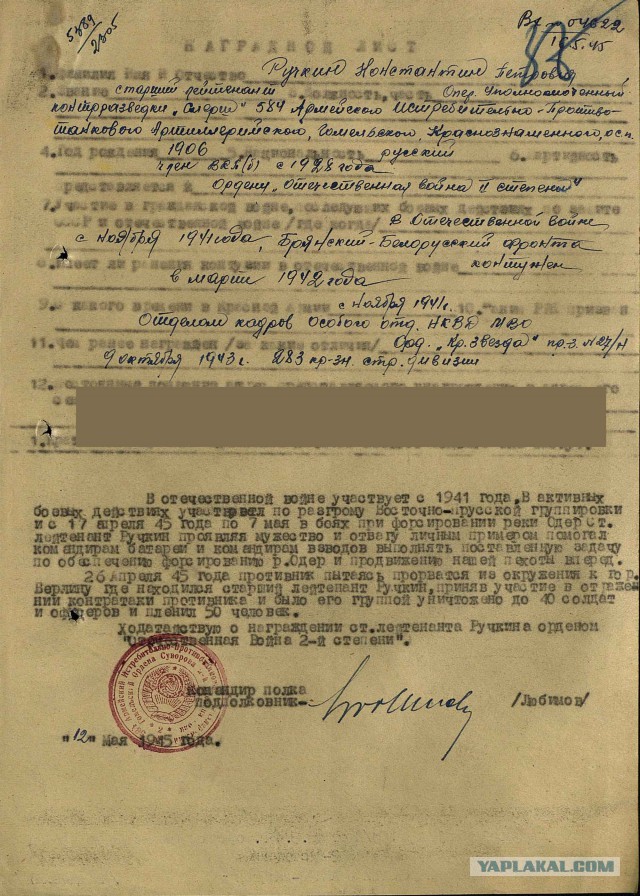 5389
2305
Вх. № 04622
16.5.45
НАГРАДНОЙ ЛИСТ
1. Фамилия Имя и Отчество Ручкин Константин Петрович
2. Звание старший лейтенант 3. Должность, часть Опер. Уполномоченный
контрразведки „Смерш" 584 Армейского Истребительно-Противо-
танкового Артиллерийского, Гомельского Краснознаменного, ос.п.
4. Год рождения 1906 5. Национальность русский 6. Партийность
член ВКП(б) с 1928 года
Представляется к Ордену „Отечественная война II степени"
7. Участие в гражданской войне, последующих боевых действиях по защите
СССР и отечественной войне /где, когда/ В Отечественной войне
с ноября 1941 года, Брянский-Белорусский фронта
8. Имеет ли ранения и контузии в отечественной войне контужен
в марте 1942 года
9. С какого времени в Красной армии с ноября 1941г. 10. Каким РВК призван
Отделом кадров особого отд. НКВД МВО
11. Чем ранее награжден /за какие отличия/ Орд. „Кр. Звезда" пр. з. №27/н
9 октября 1943 г. 283 кр-зн. стр. дивизии
12.
В отечественной войне участвует с 1941 года. В активных
боевых действиях участвовал по разгрому Восточно-Прусской группировки
и с 17 апреля 45 года по 7 мая в боях при форсировании реки Одер Ст.
лейтенант Ручкин проявляя мужество и отвагу личным примером помогал
командирам батареи и командирам взводов выполнять поставленную задачу
по обеспечению форсированию р.Одер и продвижению нашей пехоты вперед.
26 Апреля 45 года противник пытаясь прорватся из окружения к гор.
Берлину где находился старший лейтенант Ручкин, приняв участие в отраже
нии контратаки противника и было его группой уничтожено до 40 солдат
и офицеров и пленил 50 человек.
Ходатайствую о награждении ст. лейтенанта Ручкина орденом
"Отечественная Война 2-й степени".
Командир полка
подполковник-
/Любимов/
"12" Мая 1945 года.
YAPLAKAL.COM